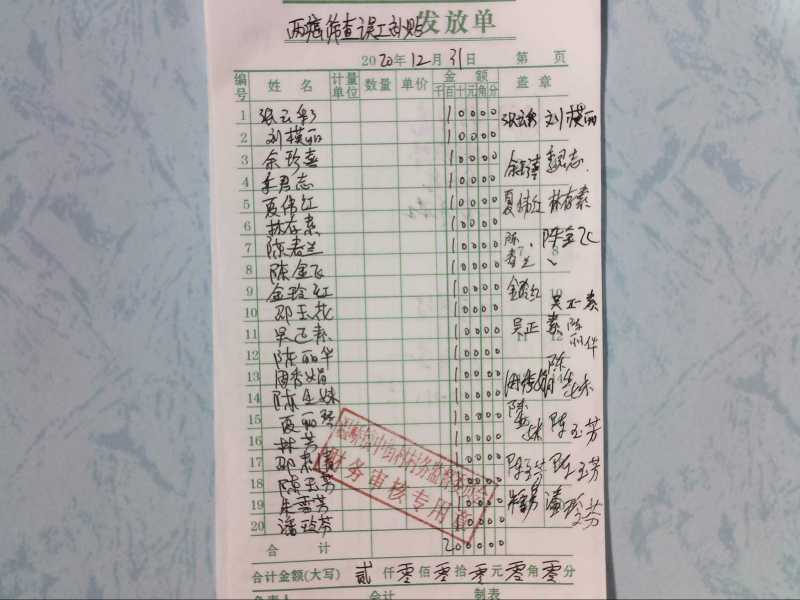 两癌筛查误工补贴发放单
2020年12月31日 第 页
编号 姓名 计量单位 数量 单价 金额 盖章
千百十元角分
1 张云彩 10000 张云彩 刘模丽
2 刘模丽 10000
3 余珍熹 10000
4 李君志 10000
5 夏伟红 10000 夏伟红 林存素
6 林存素 10000
7 陈春兰 10000 陈春兰 陈金飞
8 陈金飞 10000
9 金玲红 10000 金玲红
10 邵玉花 10000
11 吴正素 10000 吴正素 陈丽华
12 陈丽华 10000
13 周秀娟 10000
14 陈生妹 10000
15 夏丽琴 10000
16 林芳 10000 陈玉芳
17 邵 10000
18 陈玉芳 10000 陈玉芳
19 朱雪芳 10000 潘玲芬
20 潘玲芬 10000
合计 200000
财务审核专用章
合计金额(大写) 贰仟零佰零拾零元零角零分
负责人 会计 制表